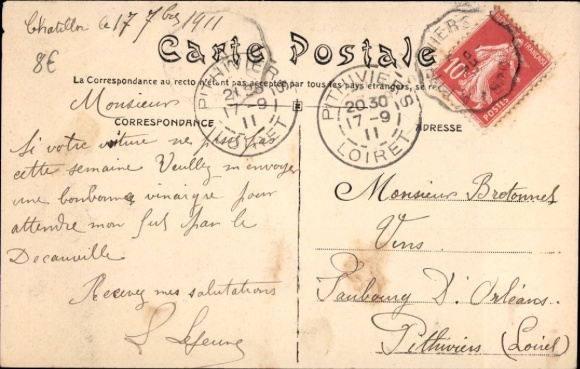 Chatillon le 17 7bre 1911
8€
Carte Postale
La Correspondance au recto n'étant pas acceptée par tous les pays étrangers, se re
CORRESPONDANCE
ADRESSE
PITHIVIERS
20.30
17-9
11
LOIRET
PITHIVIERS
20.30
17-9
11
LOIRET
10
POSTES
Monsieur
Si votre voiture ne
cette semaine Veuillez m'envoyer
une bonbonne vinaigre pour
attendre mon fut par le
Decauville
Recevez mes salutations
L Lejeune
Monsieur Bretonnet
Vins
Faubourg D'Orléans
Pithiviers (Loiret)